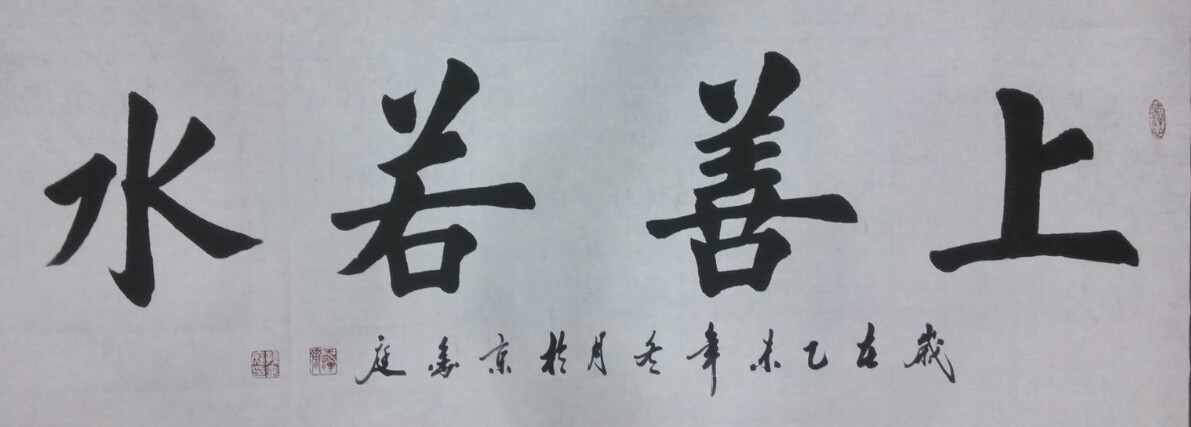 上善若水
歲在乙未年冬月於京魚庭